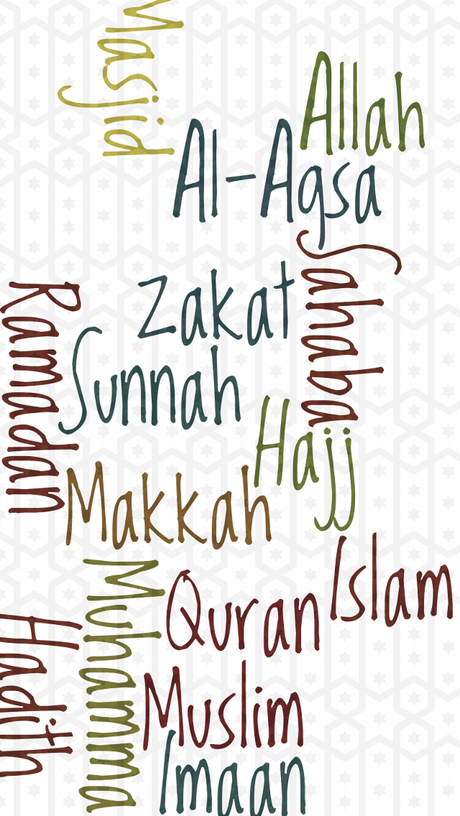 Masjid
Allah
Al-Aqsa
Sahaba
Zakat
Ramadan
Sunnah
Hajj
Makkah
Islam
Muhamma
Quran
Hadith
Muslim
Imaan